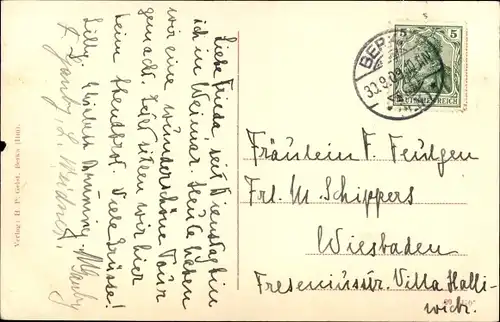 Liebe Frieda, seit Dienstag bin
ich in Weimar. Heute haben
wir eine wunderschöne Tour
gemacht. Jetzt sitzen wir hier
beim Abendbrot. Viele Grüsse!
Lilly
Verlag: H. P. Geist, Berka (Ilm).
5 5
BER
30.9.09
DEUTSCHES REICH
Fräulein F. Feulgen
Frl. M. Schippers
Wiesbaden
Freseniusstr. Villa Halli-
wich.